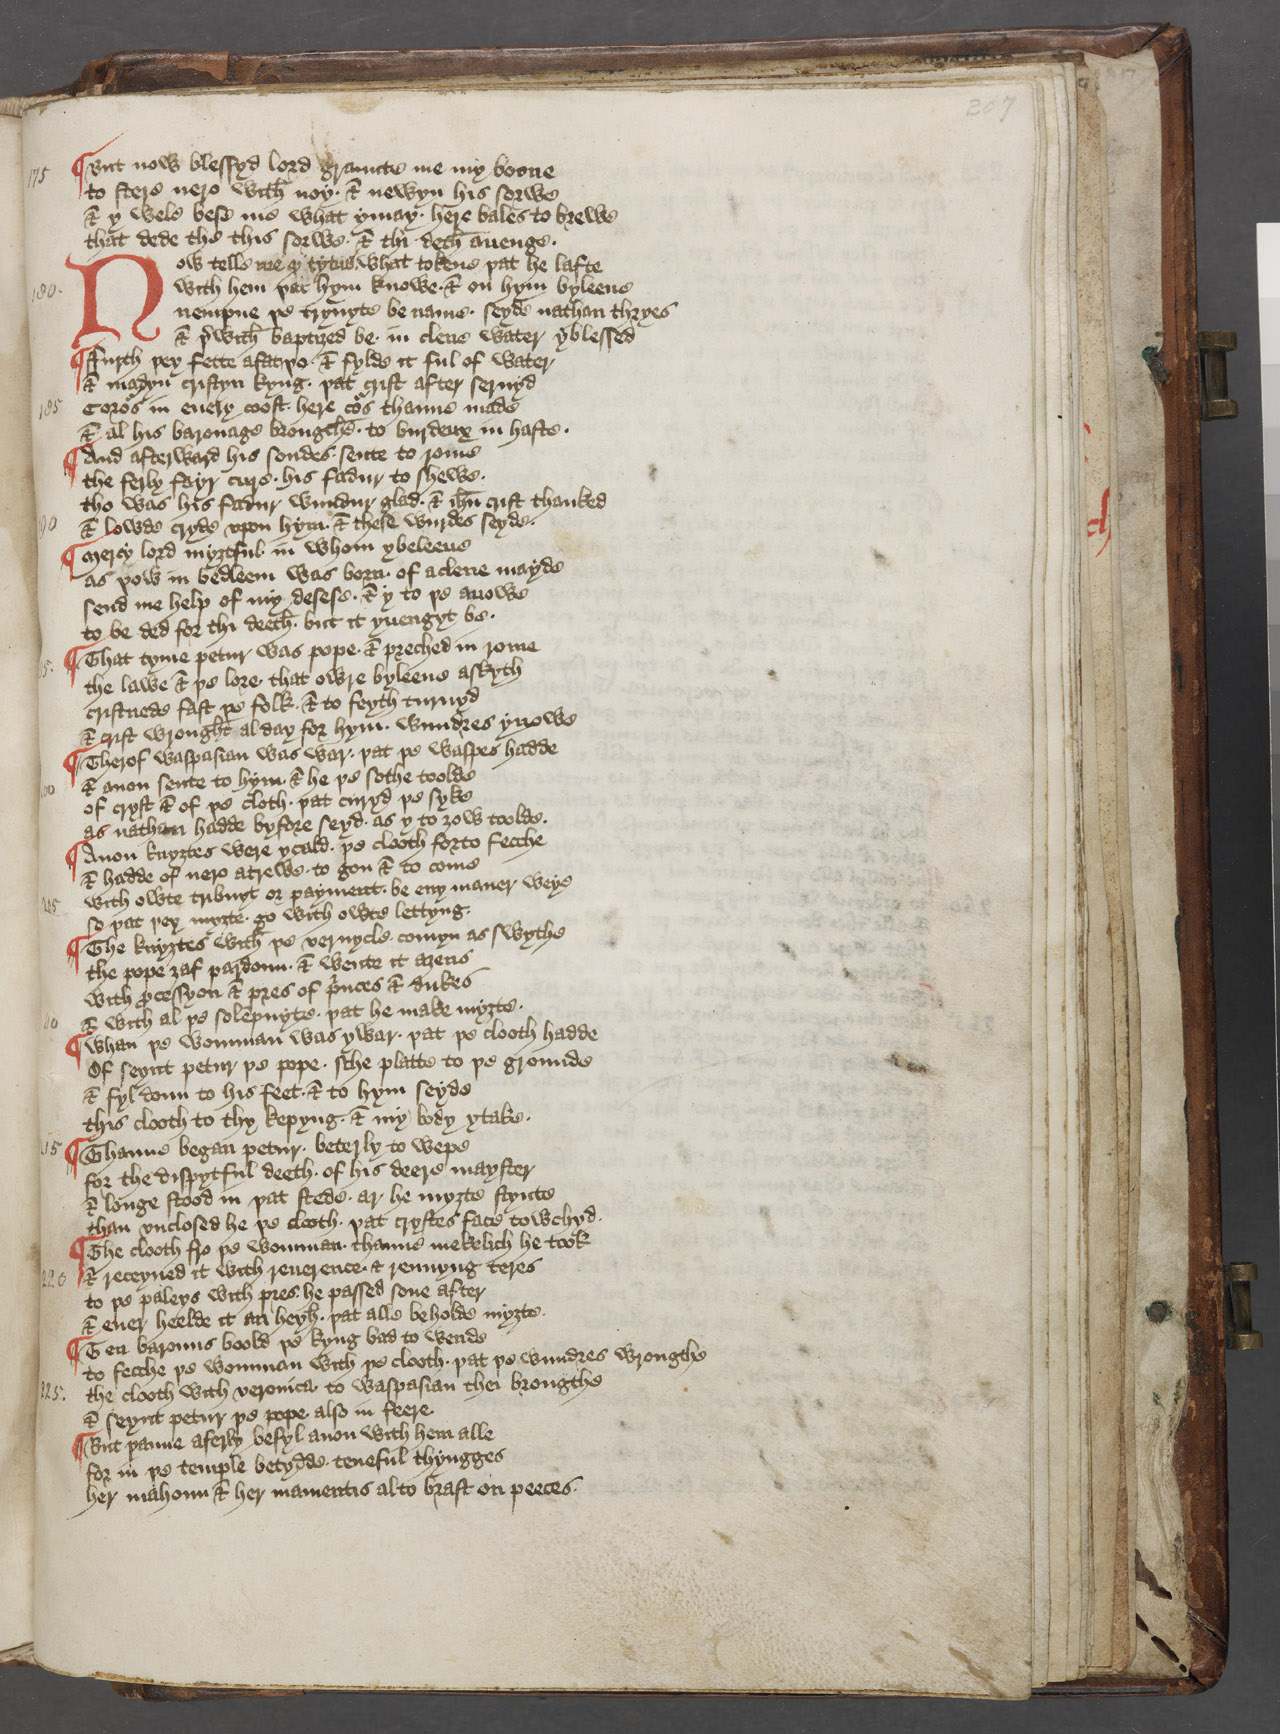 207
175 ¶ But now blessyd lord graunte me my boone
to stere nero with noy · & newyn his sorwe
& y wele bese me what ymay · here bales to brewe
that dede the this sorwe · & thi deth auenge ·
Now telle me q tytus · what tokene þat he lafte
180 · with hem þat hym knowe · & on hym byleene
nempne þe trynyte be name · seyde nathan thryes
& þ'with baptized be · in clene water yblessed
¶ ffurth þey fette afat þo · & fylde it ful of water
& madyn cristyn kyng · þat crist after seruyd
185 corours in euery coost · here cours thanne made
& al his baronage broughte · to burdeux in haste ·
¶ And afterward his sondes · sente to rome
the ferly fayr cure · his fadur to shewe ·
tho was his fadur wundur glad · & ihu crist thanked
190 & lowde cryde vpon hym · & these wurdes seyde ·
¶ Mercy lord myztful · in whom ybeleeue
as þow in bedleem was born · of aclene mayde
send me help of my desese · & y to þe auowe
to be ded for thi deeth · but it yuengyt be ·
¶ That tyme petur was pope · & preched in rome
the lawe & þe lore · that owre byleeue askyth
cristnede fast þe folk · & to feyth turnyd
& crist wrought al day for hym · wundres ynowe
¶ Therof waspasian was war · þat þe waspes hadde
200 & anon sente to hym · & he þe sothe toolde
of cryst & of þe cloth · þat curyd þe syke
as nathan hadde byfore seyd · as y to zow toolde ·
¶ Anon knyztes were ycald · þe clooth forto fecche
& hadde of nero atrewe · to gon & to come
205 with owte tribuyt or payment · be eny maner weye
so þat þey myzte · go with owte lettyng ·
¶ The knyztes with þe vernycle · comyn as swythe
the pope zaf pardoun · & wente it azens
with processyon & pres of princes & dukes
210 & with al þe solepnyte · þat he make myzte ·
¶ Whan þe womman was ywar · þat þe clooth hadde
Of seynt petur þe pope · sche platte to þe grounde
& fyl doun to his feet · & to hym seyde
this clooth to thy kepyng · & my body ytake ·
215 ¶ Thanne began petur · beterly to wepe
for the dispytful deeth · of his deere mayster
& longe stood in þat stede · ar he myzte stynte
than vnclosed he þe clooth · þat crystes face towchyd ·
¶ The clooth fro þe womman · thanne mekelich he took
220 & receyued it with reuerence · & rennyng teres
to þe paleys with pres · he passed sone after
& euer heelde it an heyh · þat alle beholde myzte ·
¶ Ten barouns boold þe kyng bad to wende
to fecche þe womman with þe clooth · þat þe wundres wroughte
225 · the clooth with veronica · to waspasian thei broughte
& seynt petur þe pope · also in feere ·
¶ But þanne aferly befyl anon with hem alle
for in þe temple betydde · teneful thyngges
her mahoun & her mamentis al to brast on peeces ·